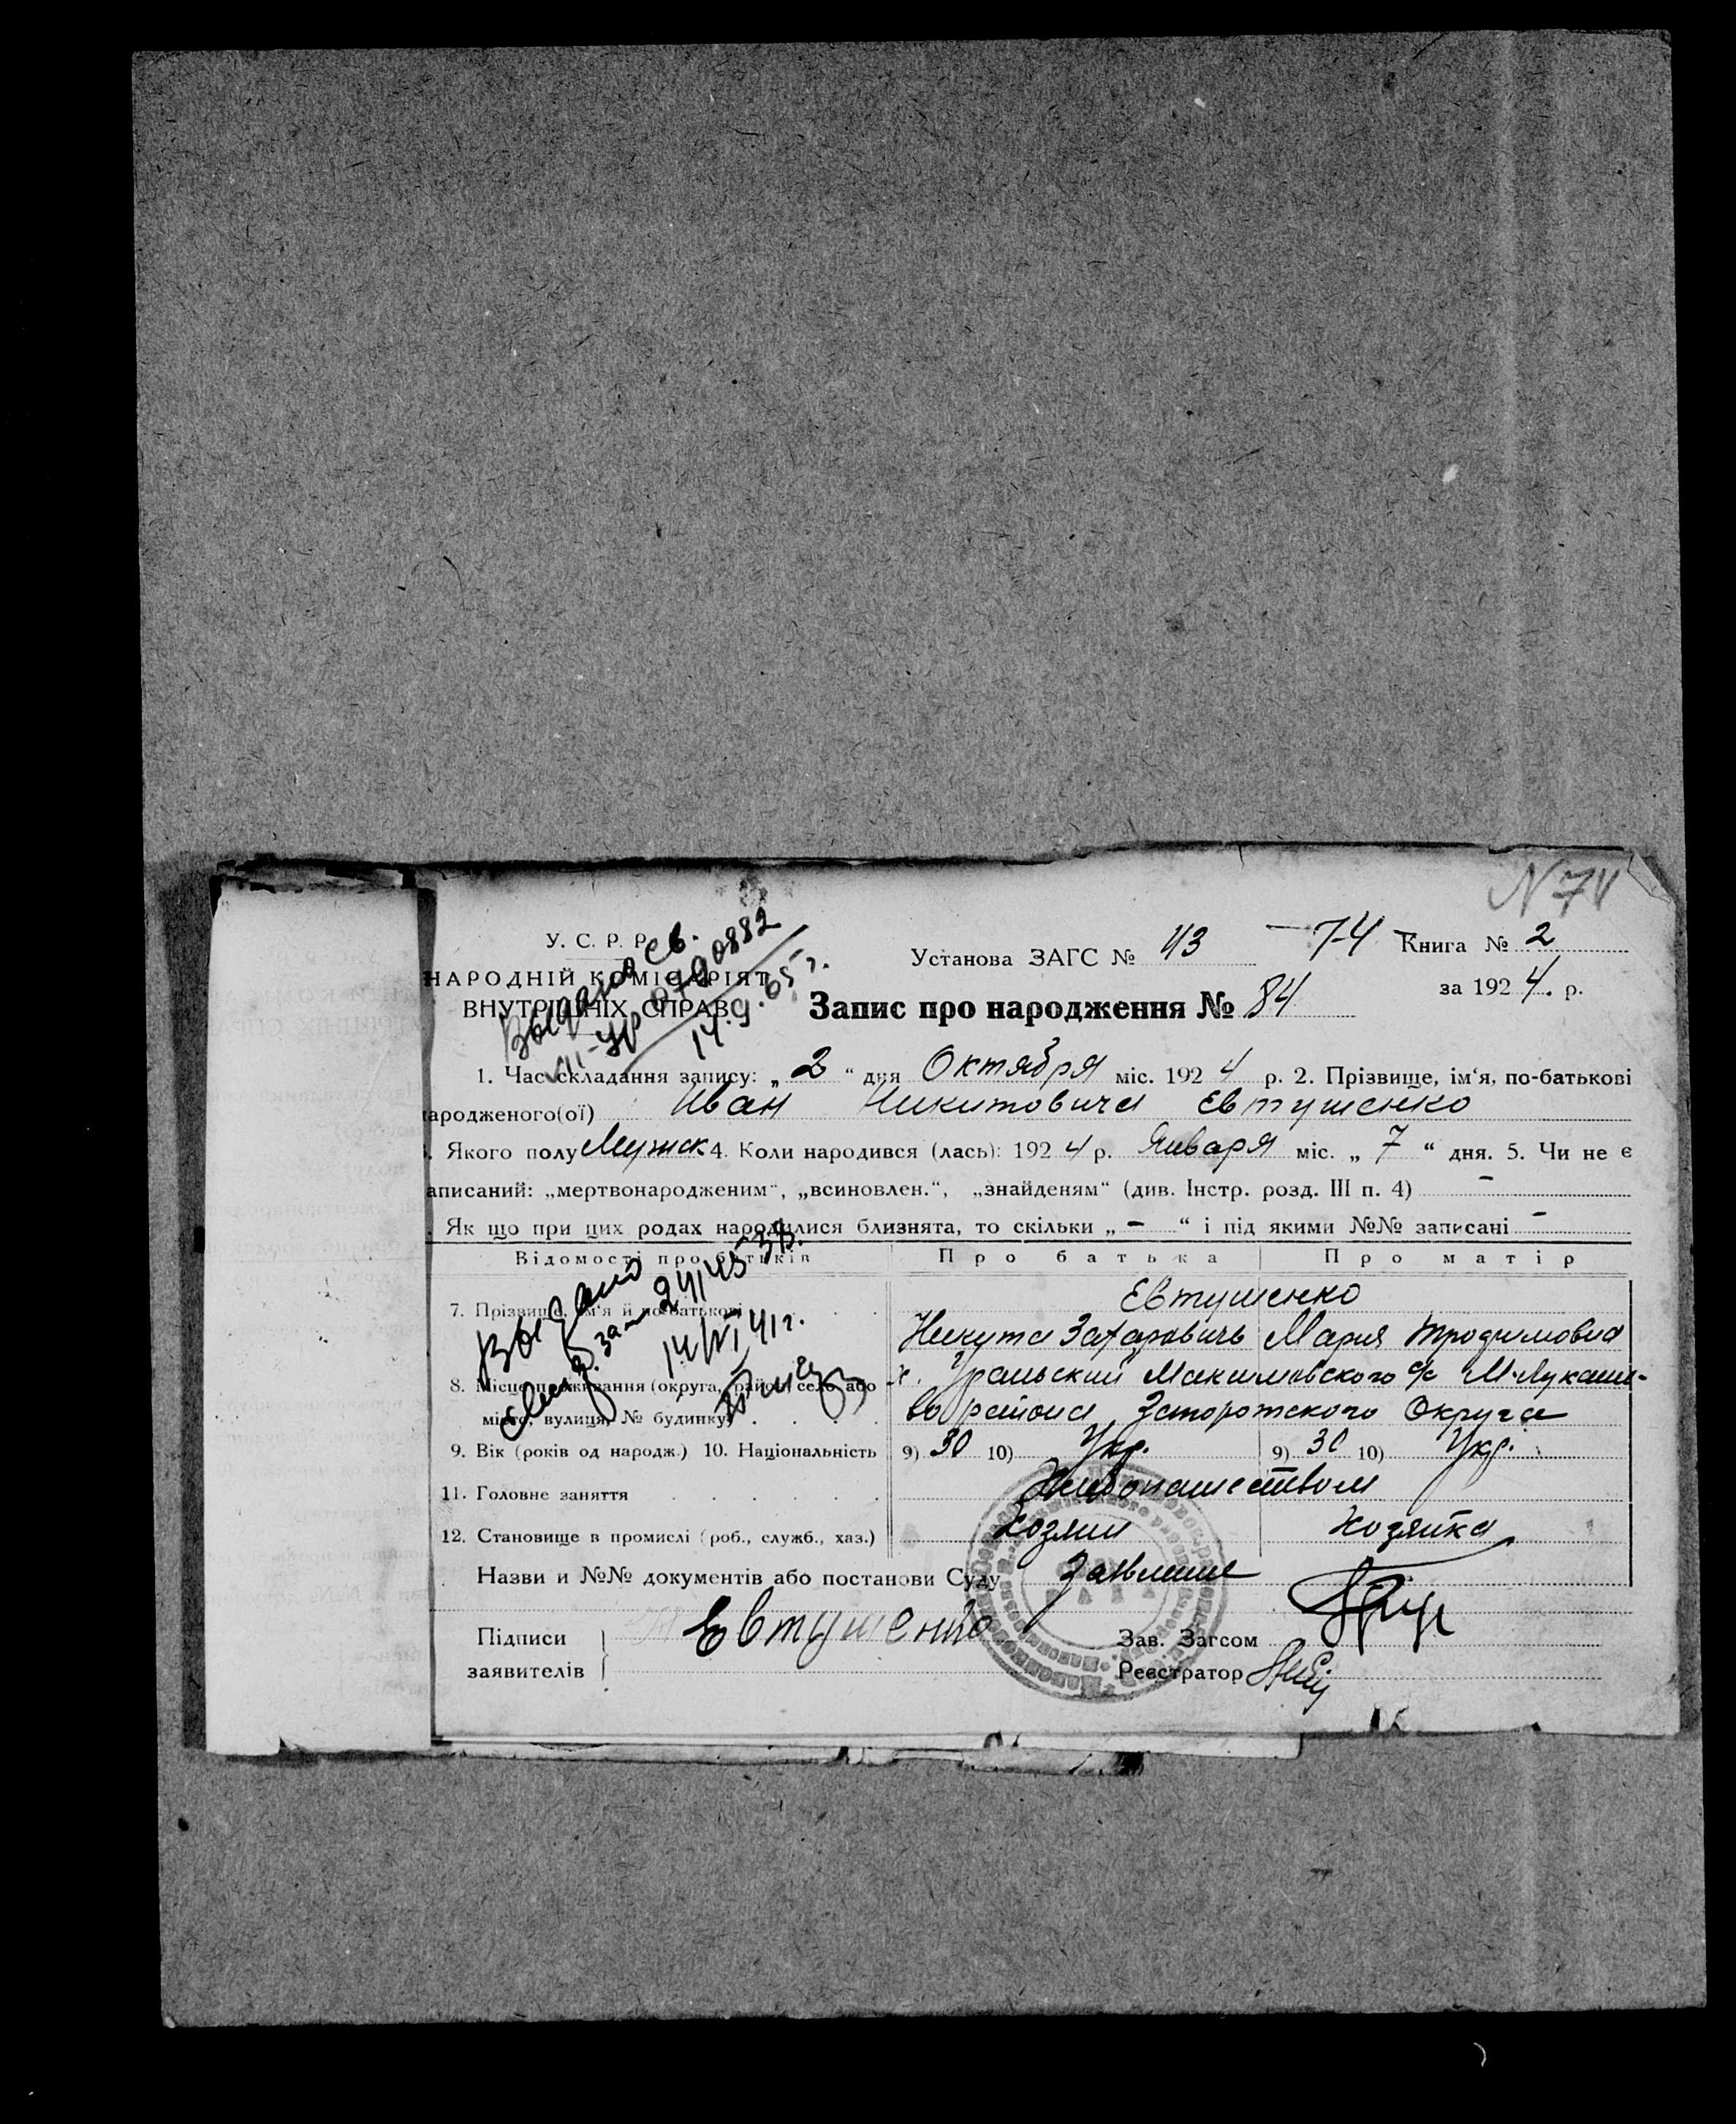 N 74
У. С. Р. Р.
НАРОДНІЙ КОМІСАРІЯТ
ВНУТРІШНІХ СПРАВ
Выдано св.
VII-УР 0790882
14.9.65 г.
Установа ЗАГС № 43 — 74 Книга № 2
за 1924. р.
Запис про народження № 84
1. Час складання запису: „ 2 “ дня Октября міс. 1924 р. 2. Прізвище, ім‘я, по-батькові
ародженого(ої) Иван Никитовича Евтушенко
. Якого полу Мужск. 4. Коли народився (лась): 1924 р. Января міс. „ 7 “ дня. 5. Чи не є
аписаний: „мертвонародженим“, „всиновлен.“, „знайденям“ (див. Інстр. розд. III п. 4) -
. Як що при цих родах народилися близнята, то скільки „ - “ і під якими №№ записані -
Відомості про батьків Про батька Про матір
Выдано
24145
14/VI 41 г.
7. Прізвище, ім‘я й по-батькові Евтушенко
Никита Захаровичь Мария Трофимовна
8. Місце проживання (округа, район, село або х. Уральский Макимовского с/с М-Лукаши-
місто, вулиця, № будинку) во района Запорожского Округа
9. Вік (років од народж.) 10. Національність 9) 30 10) Укр. 9) 30 10) Укр.
11. Головне заняття Хлебопашеством
12. Становище в промислі (роб., служб., хаз.) Хозяин Хозяйка
Назви и №№ документів або постанови Суду Заявление
Підписи Евтушенко Зав. Загсом
заявителів Реєстратор